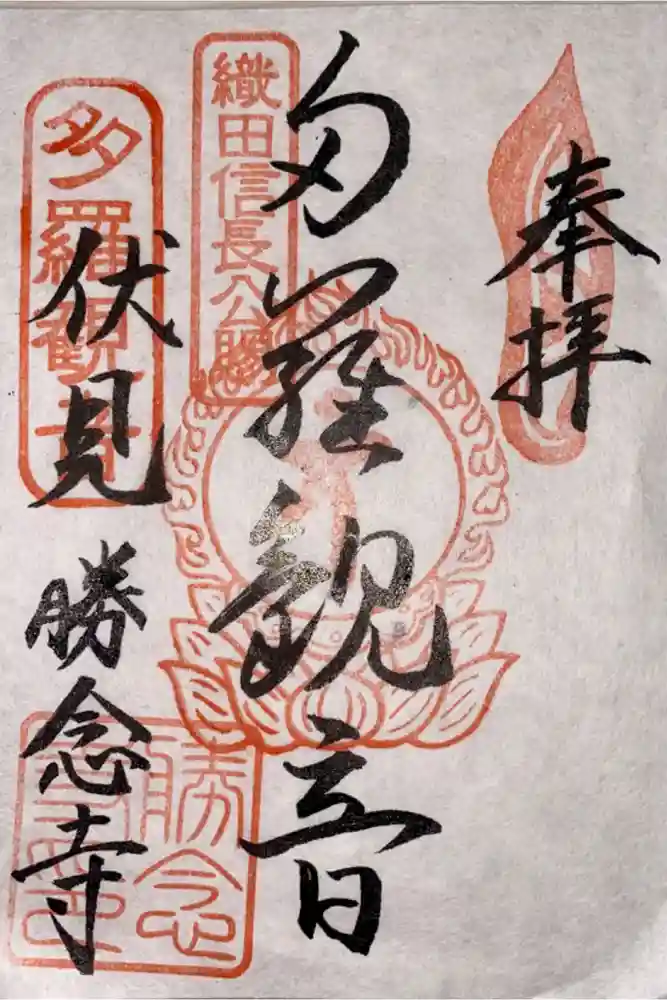 奉拝
織田信長公賜
多羅観音
多羅観音
伏見
勝念寺
勝念
寺印